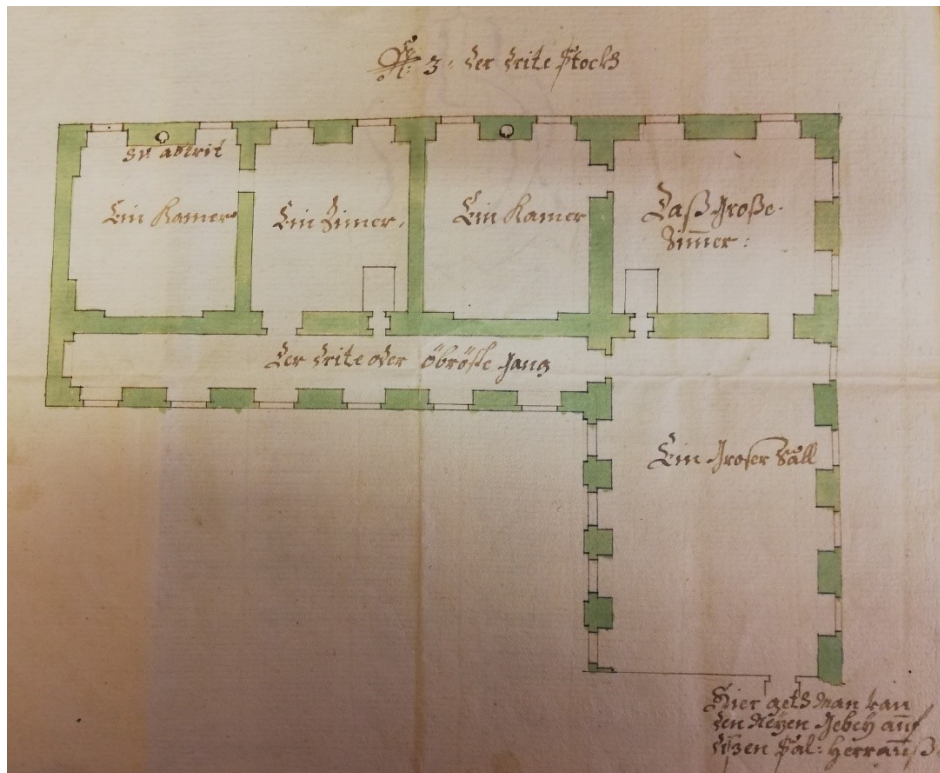 N: 3. der drite Stock
ein abtrit
Ein Kamer
Ein Zimer.
Ein Kamer
Daß große
Zimer:
der drite oder öbröste gang
Ein groser Sall
Hier man
den auf
disen Sal: herrauß